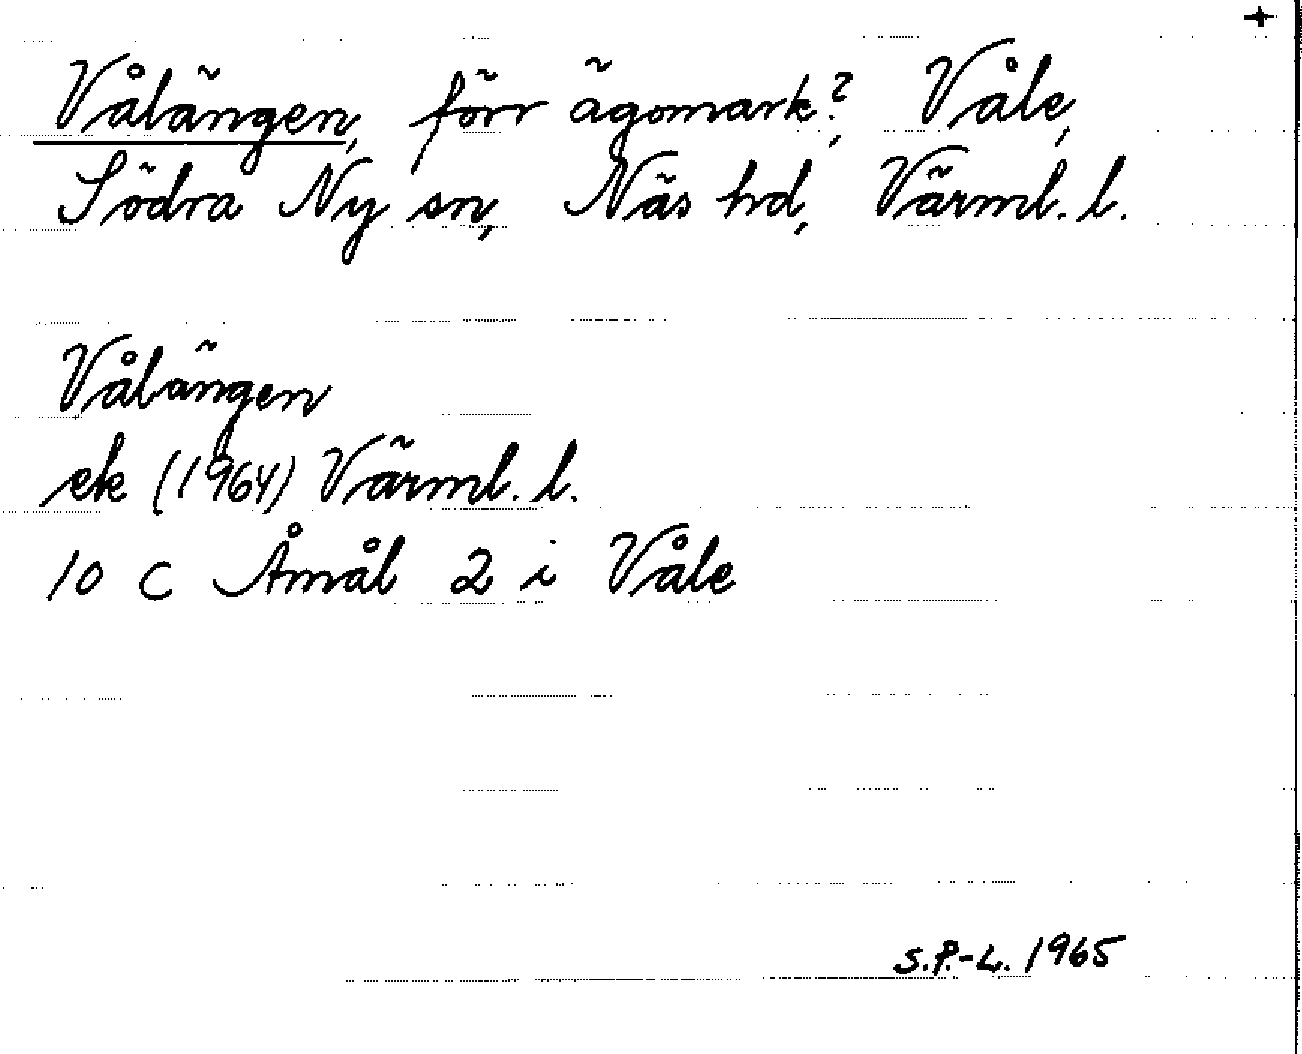 +
Vålängen, förr ägomark?, Våle,
Södra Ny sn, Näs hd, Värml. l.
Vålängen
ek (1964) Värml. l.
10 C Åmål 2 i Våle
S.P.-L. 1965